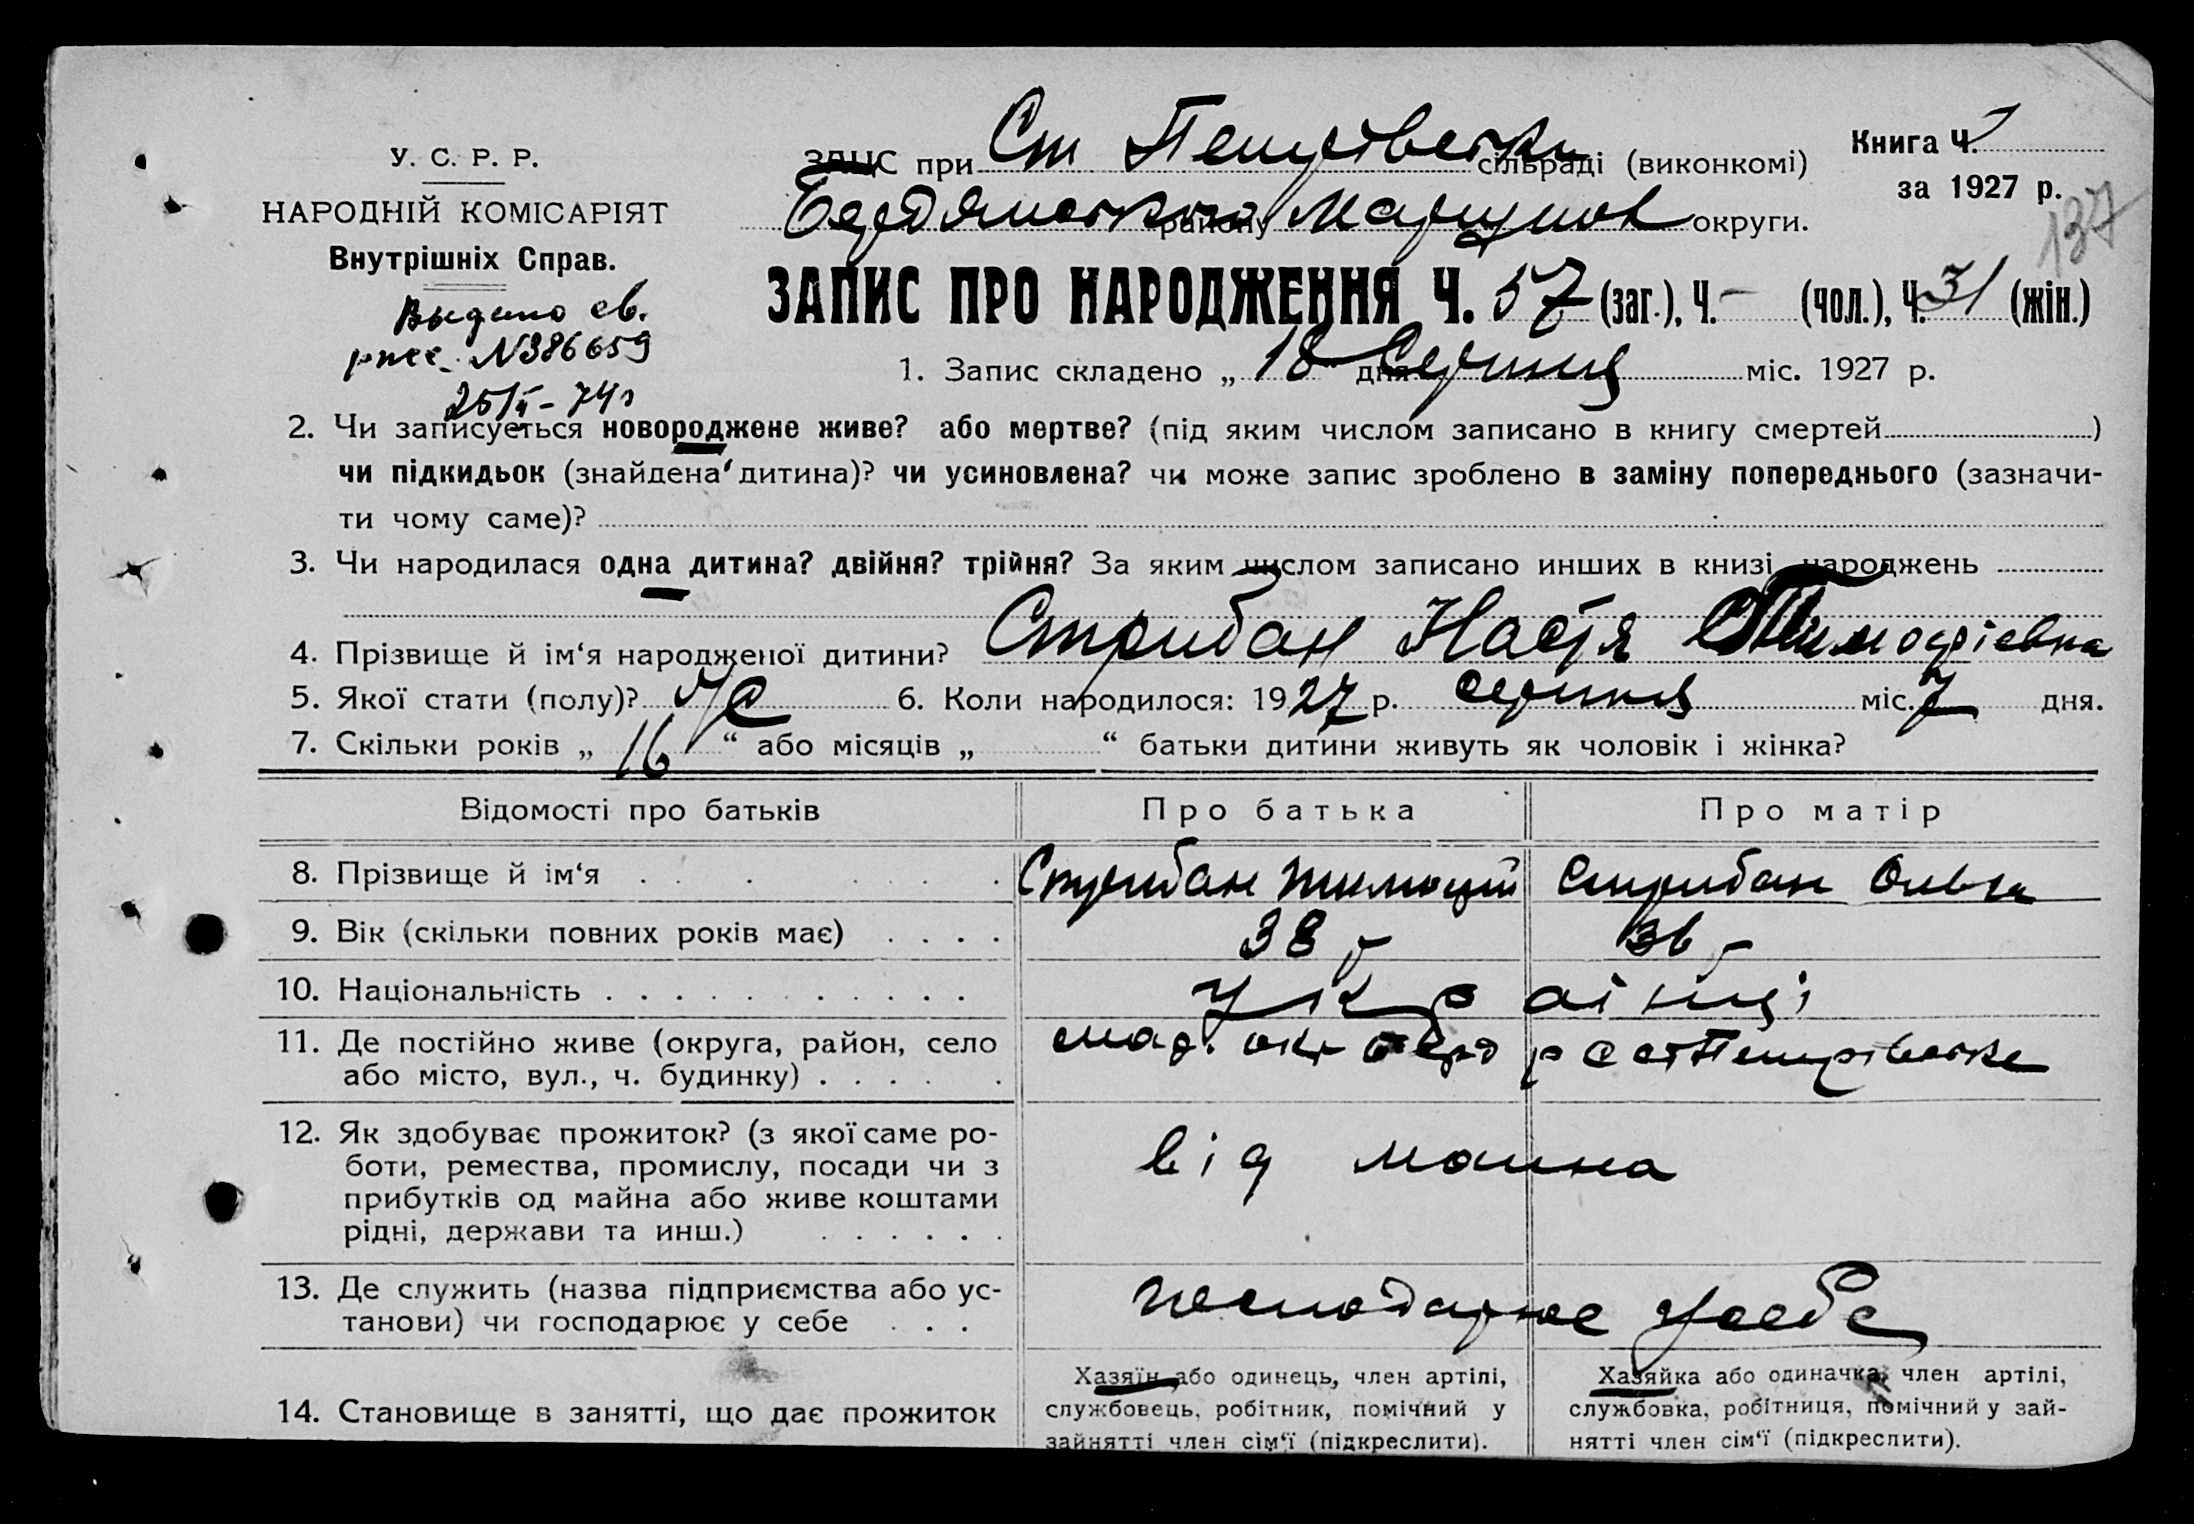 У. С. Р. Р.
НАРОДНІЙ КОМІСАРІЯТ
Внутрішніх Справ.
Выдано св.
N386659
ЗАЦС при Ст Петрівськи сільраді (виконкомі)
Книга Ч.
за 1927 р.
137
Бердянського району Маріупол округи.
ЗАПИС ПРО НАРОДЖЕННЯ Ч. 57 (заг.), Ч. - (чол.), Ч. 31 (жін.)
1. Запис складено „ 18 “ дня Серпня міс. 1927 р.
2. Чи записується новороджене живе? або мертве? (під яким числом записано в книгу смертей )
чи підкидьок (знайдена дитина)? чи усиновлена? чи може запис зроблено в заміну попереднього (зазначи-
ти чому саме)?
3. Чи народилася одна дитина? двійня? трійня? За яким числом записано инших в книзі народжень
4. Прізвище й ім‘я народженої дитини? Стрибан Настя Тимофієвна
5. Якої стати (полу)? ж 6. Коли народилося: 1927 р. серпня міс. 7 дня.
7. Скільки років „ 16 “ або місяців „ “ батьки дитини живуть як чоловік і жінка?
Відомості про батьків Про батька Про матір
8. Прізвище й ім‘я Стрибан Тимофій Стрибан Ольга
9. Вік (скільки повних років має) 38 р 36 р
10. Національність українці
11. Де постійно живе (округа, район, село
або місто, вул., ч. будинку) мар. окр берд р с ст Петрівське
12. Як здобуває прожиток? (з якої саме ро-
боти, ремества, промислу, посади чи з
прибутків од майна або живе коштами
рідні, держави та инш.) від маина
13. Де служить (назва підприємства або ус-
танови) чи господарює у себе господарює у себе
14. Становище в занятті, що дає прожиток
Хазяїн або одинець, член артілі,
службовець, робітник, помічний у
зайнятті член сім‘ї (підкреслити).
Хазяйка або одиначка, член артілі,
службовка, робітниця, помічний у зай-
нятті член сім‘ї (підкреслити).